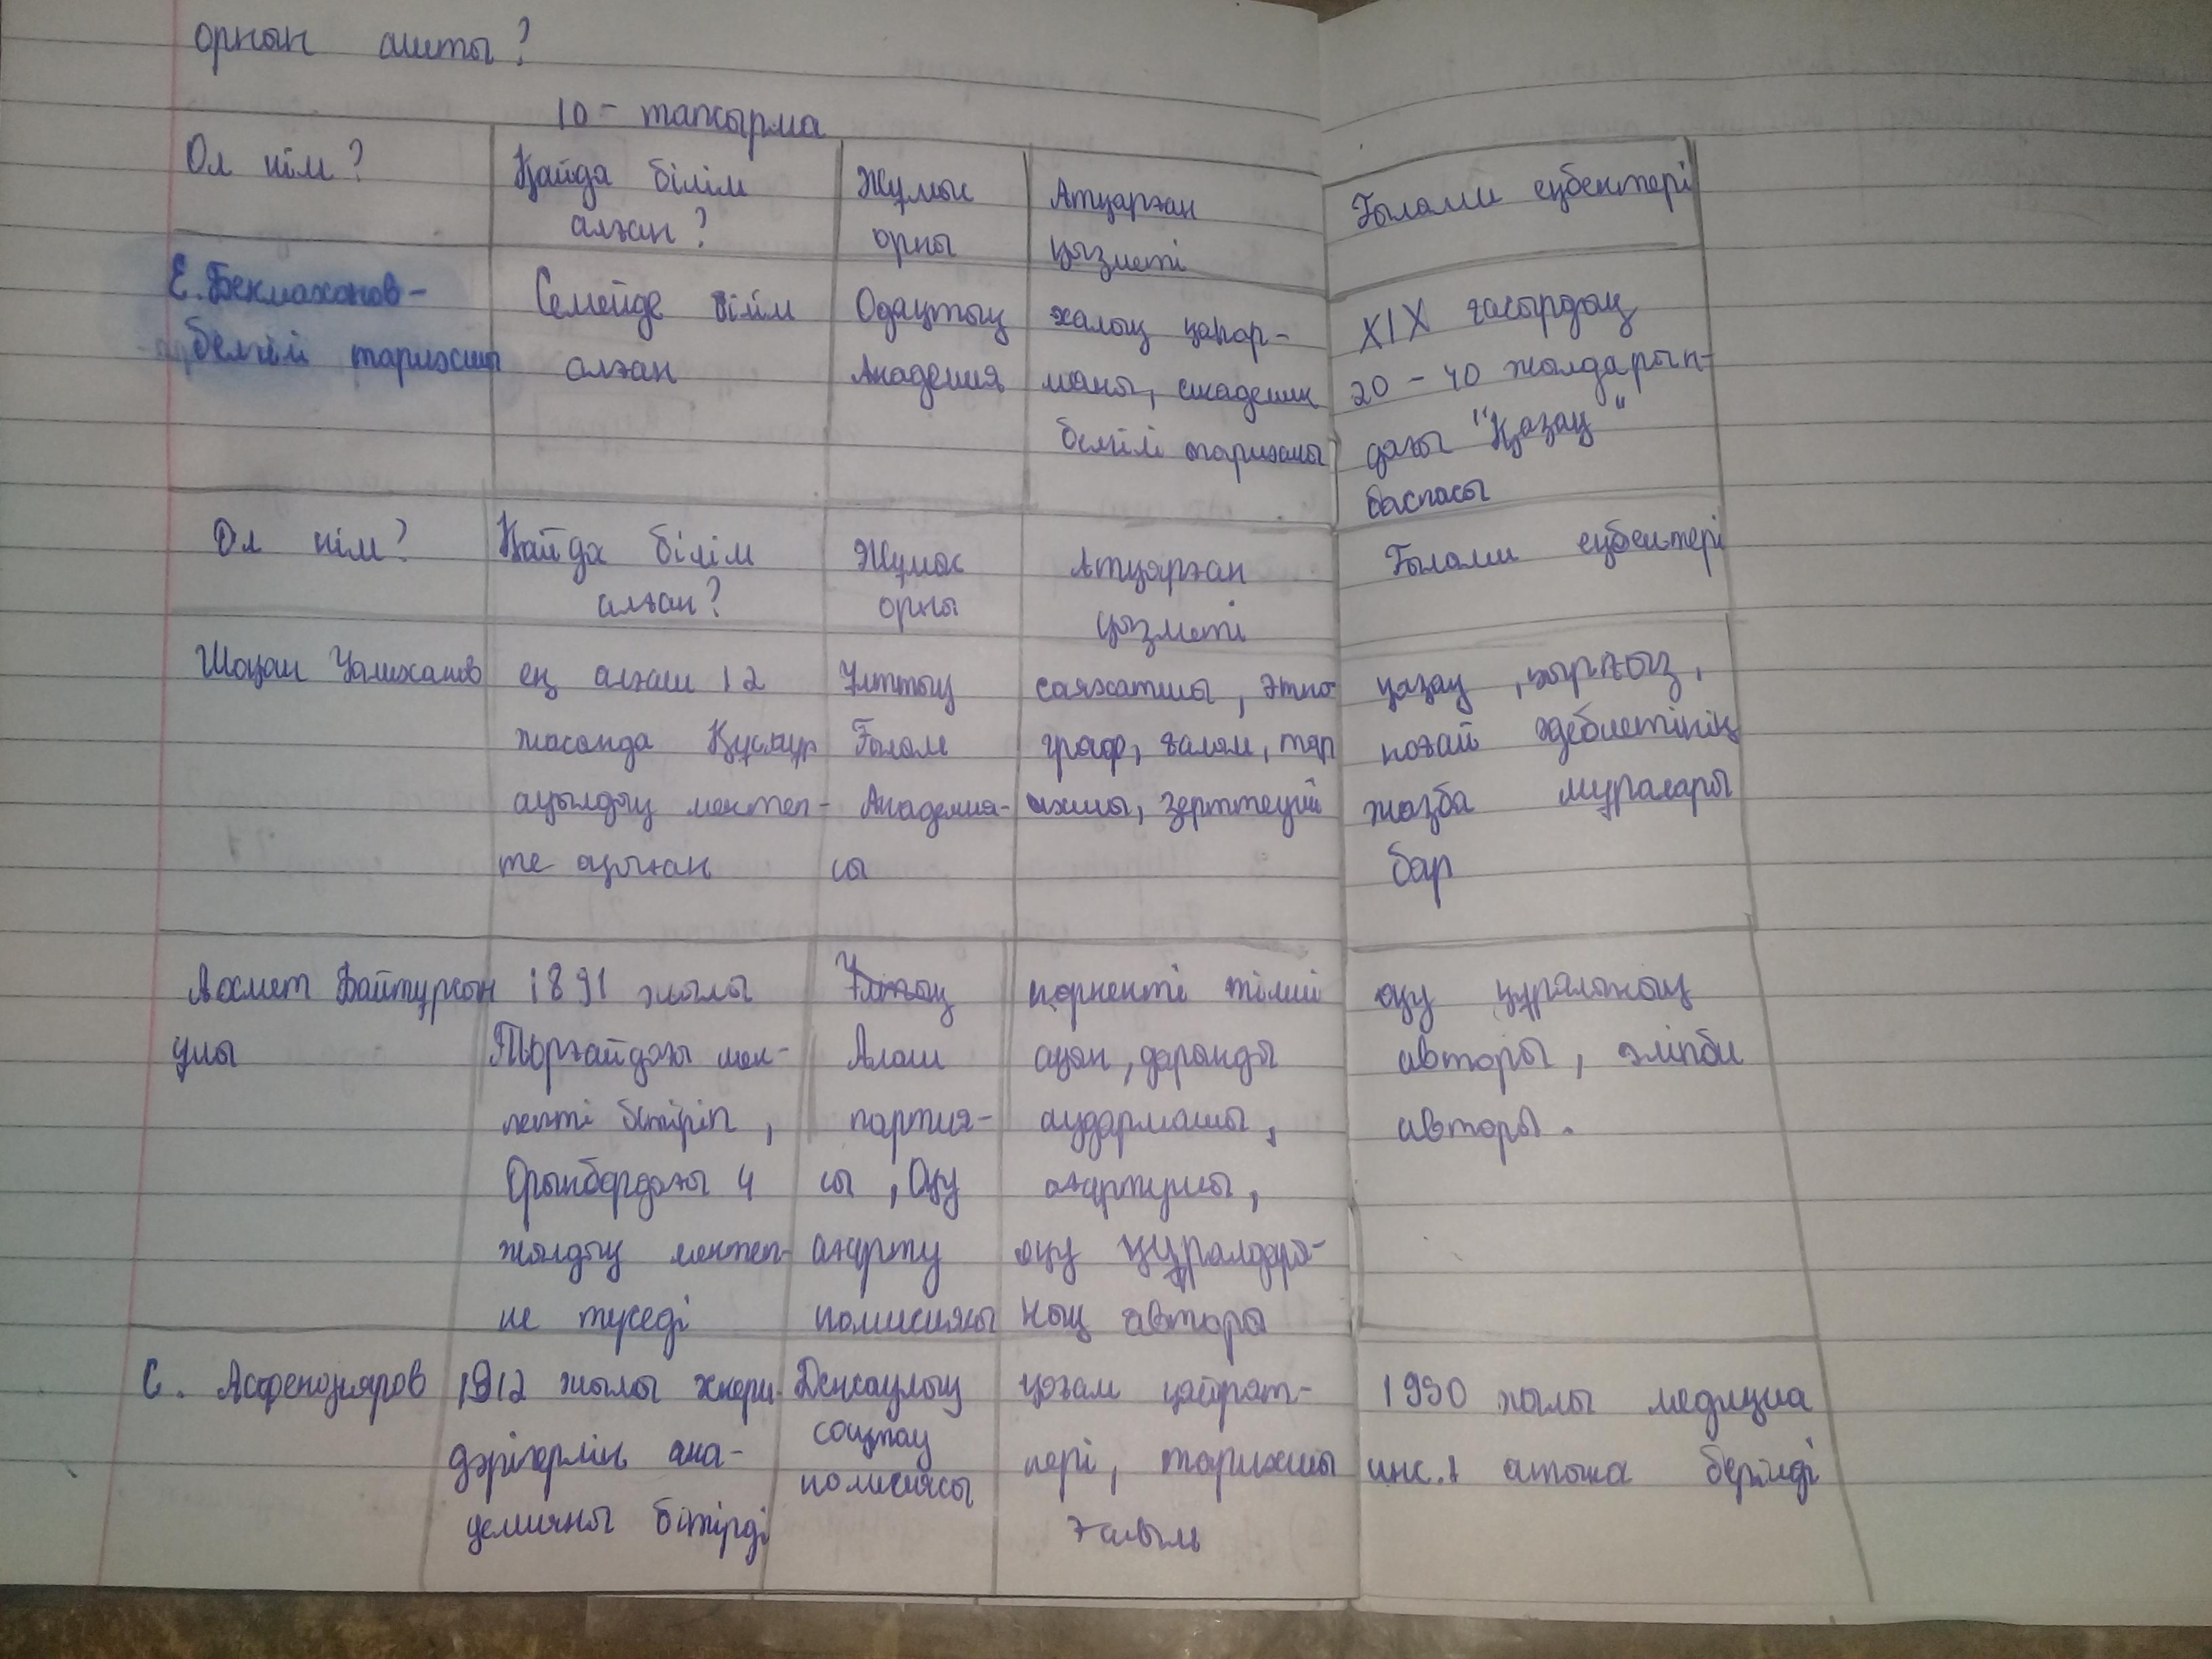 орнын ашты?
10 - тапсырма
Ол кім?
Қайда білім
алған?
Жұмыс
орны
Атқарған
қызметі
Ғылами еңбектері
Е. Бекмаханов -
белгілі тарихшы
Семейде білім
алған
Одақтық
Академия
халық қаһар-
маны, академик
белгілі тарихшы
XIX ғасырдың
20 - 40 жылдарын-
дағы "Қазақ"
баспасы
Ол кім?
Қайда білім
алған?
Жұмыс
орны
Атқарған
қызметі
Ғылами еңбектері
Шоқан Уалиханов
ең алғаш 12
жасанда Құсмұр
ауылдық мектеп-
те оқыған
Ұлттық
Ғылым
Академия-
сы
саяхатшы, этно
граф, ғалым, тар
ихшы, зерттеуші
қазақ, қырғыз,
ноғай әдебиетінің
жазба мұралары
бар
Ахмет Байтұрсын
ұлы
1891 жылы
Торғайдағы мек-
тепті бітіріп,
Орынбордағы 4
жылдық мектеп-
ке түседі
Алаш
партия-
сы, Оқу
ағарту
комиссиясы
көрнекті тілші
ақын, дарынды
аудармашы,
ағартушы,
оқу құралдары-
ның авторы
оқу құралының
авторы, әліпби
авторы.
С. Асфендияров
1912 жылы әскери
дәрігерлік ака-
демияны бітірді
Денсаулық
сақтау
комиссясы
қоғам қайрат-
кері, тарихшы
ғалым
1990 жылы медицина
инс.т атына берілді